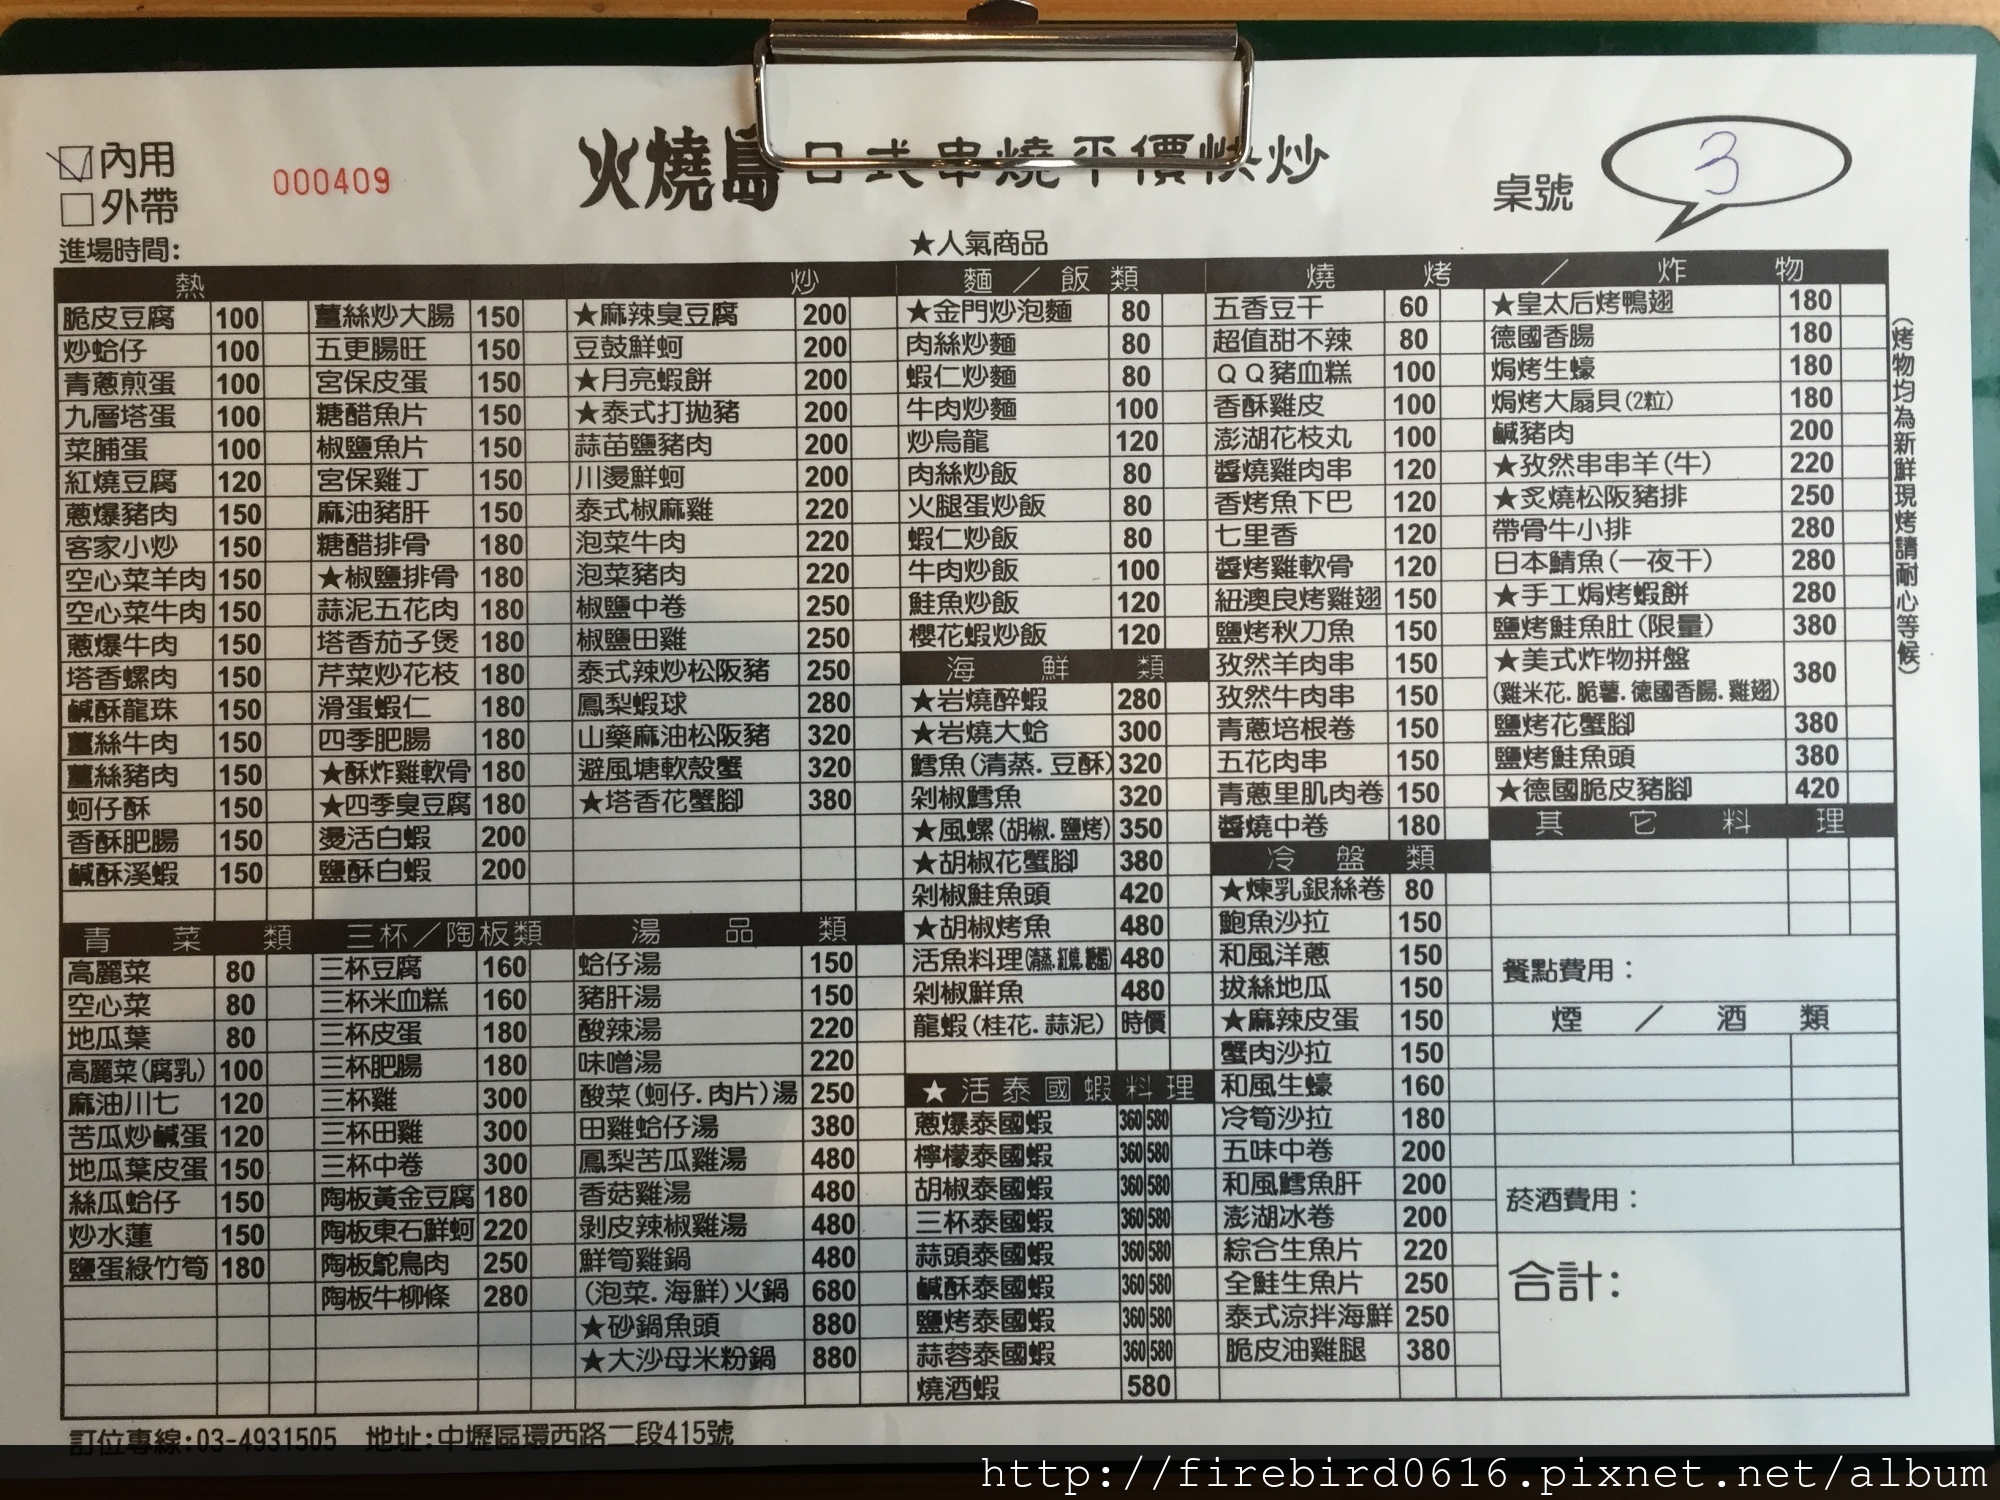 內用
外帶
進場時間:
000409
火燒島 日式串燒平價快炒
★人氣商品
桌號 3
熱 炒
脆皮豆腐 100
炒蛤仔 100
青蔥煎蛋 100
九層塔蛋 100
菜脯蛋 100
紅燒豆腐 120
蔥爆豬肉 150
客家小炒 150
空心菜羊肉 150
空心菜牛肉 150
蔥爆牛肉 150
塔香螺肉 150
鹹酥龍珠 150
薑絲牛肉 150
薑絲豬肉 150
蚵仔酥 150
香酥肥腸 150
鹹酥溪蝦 150
薑絲炒大腸 150
五更腸旺 150
宮保皮蛋 150
糖醋魚片 150
椒鹽魚片 150
宮保雞丁 150
麻油豬肝 150
糖醋排骨 180
★椒鹽排骨 180
蒜泥五花肉 180
塔香茄子煲 180
芹菜炒花枝 180
滑蛋蝦仁 180
四季肥腸 180
★酥炸雞軟骨 180
★四季臭豆腐 180
燙活白蝦 200
鹽酥白蝦 200
★麻辣臭豆腐 200
豆鼓鮮蚵 200
★月亮蝦餅 200
★泰式打拋豬 200
蒜苗鹽豬肉 200
川燙鮮蚵 200
泰式椒麻雞 220
泡菜牛肉 220
泡菜豬肉 220
椒鹽中卷 250
椒鹽田雞 250
泰式辣炒松阪豬 250
鳳梨蝦球 280
山藥麻油松阪豬 320
避風塘軟殼蟹 320
★塔香花蟹腳 380
青菜類
高麗菜 80
空心菜 80
地瓜葉 80
高麗菜(腐乳) 100
麻油川七 120
苦瓜炒鹹蛋 120
地瓜葉皮蛋 150
絲瓜蛤仔 150
炒水蓮 150
鹽蛋綠竹筍 180
三杯／陶板類
三杯豆腐 160
三杯米血糕 160
三杯皮蛋 180
三杯肥腸 180
三杯雞 300
三杯田雞 300
三杯中卷 300
陶板黃金豆腐 180
陶板東石鮮蚵 220
陶板鴕鳥肉 250
陶板牛柳條 280
湯品類
蛤仔湯 150
豬肝湯 150
酸辣湯 220
味噌湯 220
酸菜(蚵仔.肉片)湯 250
田雞蛤仔湯 380
鳳梨苦瓜雞湯 480
香菇雞湯 480
剝皮辣椒雞湯 480
鮮筍雞鍋 480
(泡菜.海鮮)火鍋 680
★砂鍋魚頭 880
★大沙母米粉鍋 880
麵／飯類
★金門炒泡麵 80
肉絲炒麵 80
蝦仁炒麵 80
牛肉炒麵 100
炒烏龍 120
肉絲炒飯 80
火腿蛋炒飯 80
蝦仁炒飯 80
牛肉炒飯 100
鮭魚炒飯 120
櫻花蝦炒飯 120
海鮮類
★岩燒醉蝦 280
★岩燒大蛤 300
鱈魚(清蒸.豆酥) 320
剁椒鱈魚 320
★風螺(胡椒.鹽烤) 350
★胡椒花蟹腳 380
剁椒鮭魚頭 420
★胡椒烤魚 480
活魚料理(清蒸.紅燒.糖醋) 480
剁椒鮮魚 480
龍蝦(桂花.蒜泥) 時價
★活泰國蝦料理
蔥爆泰國蝦 360 580
檸檬泰國蝦 360 580
胡椒泰國蝦 360 580
三杯泰國蝦 360 580
蒜頭泰國蝦 360 580
鹹酥泰國蝦 360 580
鹽烤泰國蝦 360 580
蒜蓉泰國蝦 360 580
燒酒蝦 580
燒烤／炸物
五香豆干 60
超值甜不辣 80
ＱＱ豬血糕 100
香酥雞皮 100
澎湖花枝丸 100
醬燒雞肉串 120
香烤魚下巴 120
七里香 120
醬烤雞軟骨 120
紐澳良烤雞翅 150
鹽烤秋刀魚 150
孜然羊肉串 150
孜然牛肉串 150
青蔥培根卷 150
五花肉串 150
青蔥里肌肉卷 150
醬燒中卷 180
冷盤類
★煉乳銀絲卷 80
鮑魚沙拉 150
和風洋蔥 150
拔絲地瓜 150
★麻辣皮蛋 150
蟹肉沙拉 150
和風生蠔 160
冷筍沙拉 180
五味中卷 200
和風鱈魚肝 200
澎湖冰卷 200
綜合生魚片 220
全鮭生魚片 250
泰式涼拌海鮮 250
脆皮油雞腿 380
★皇太后烤鴨翅 180
德國香腸 180
焗烤生蠔 180
焗烤大扇貝(2粒) 180
鹹豬肉 200
★孜然串串羊(牛) 220
★炙燒松阪豬排 250
帶骨牛小排 280
日本鯖魚(一夜干) 280
★手工焗烤蝦餅 280
鹽烤鮭魚肚(限量) 380
★美式炸物拼盤 380
(雞米花.脆薯.德國香腸.雞翅)
鹽烤花蟹腳 380
鹽烤鮭魚頭 380
★德國脆皮豬腳 420
(烤物均為新鮮現烤請耐心等候)
其它料理
餐點費用：
煙／酒類
菸酒費用：
合計：
訂位專線:03-4931505 地址:中壢區環西路二段415號
http://firebird0616.pixnet.net/album